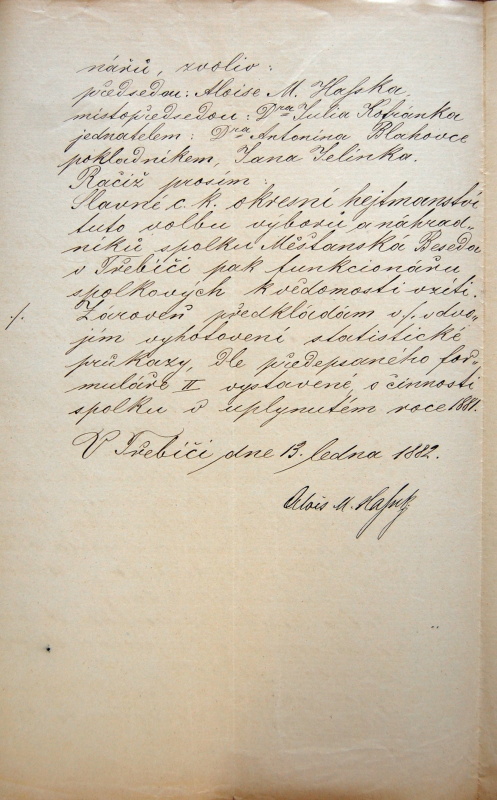 nářů, zvoliv:
předsedou: Aloise M. Hasska,
místopředsedou: Dra Julia Kofránka
jednatelem: Dra Antonína Blahovce
pokladníkem, Jana Jelínka.
Račiž prosím:
Slavné c. k. okresní hejtmanství
tuto volbu výborů a náhrad-
níků spolku Měšťanska Beseda
v Třebíči pak funkcionářů
spolkových k vědomosti vzíti.
./. Zároveň předkládám v ./. dvo-
jím vyhotovení statistické
průkazy, dle předepsaného for-
muláře II vystavené, o činnosti
spolku v uplynutém roce 1881.
V Třebíči dne 13. ledna 1882.
Alois M. Hassk